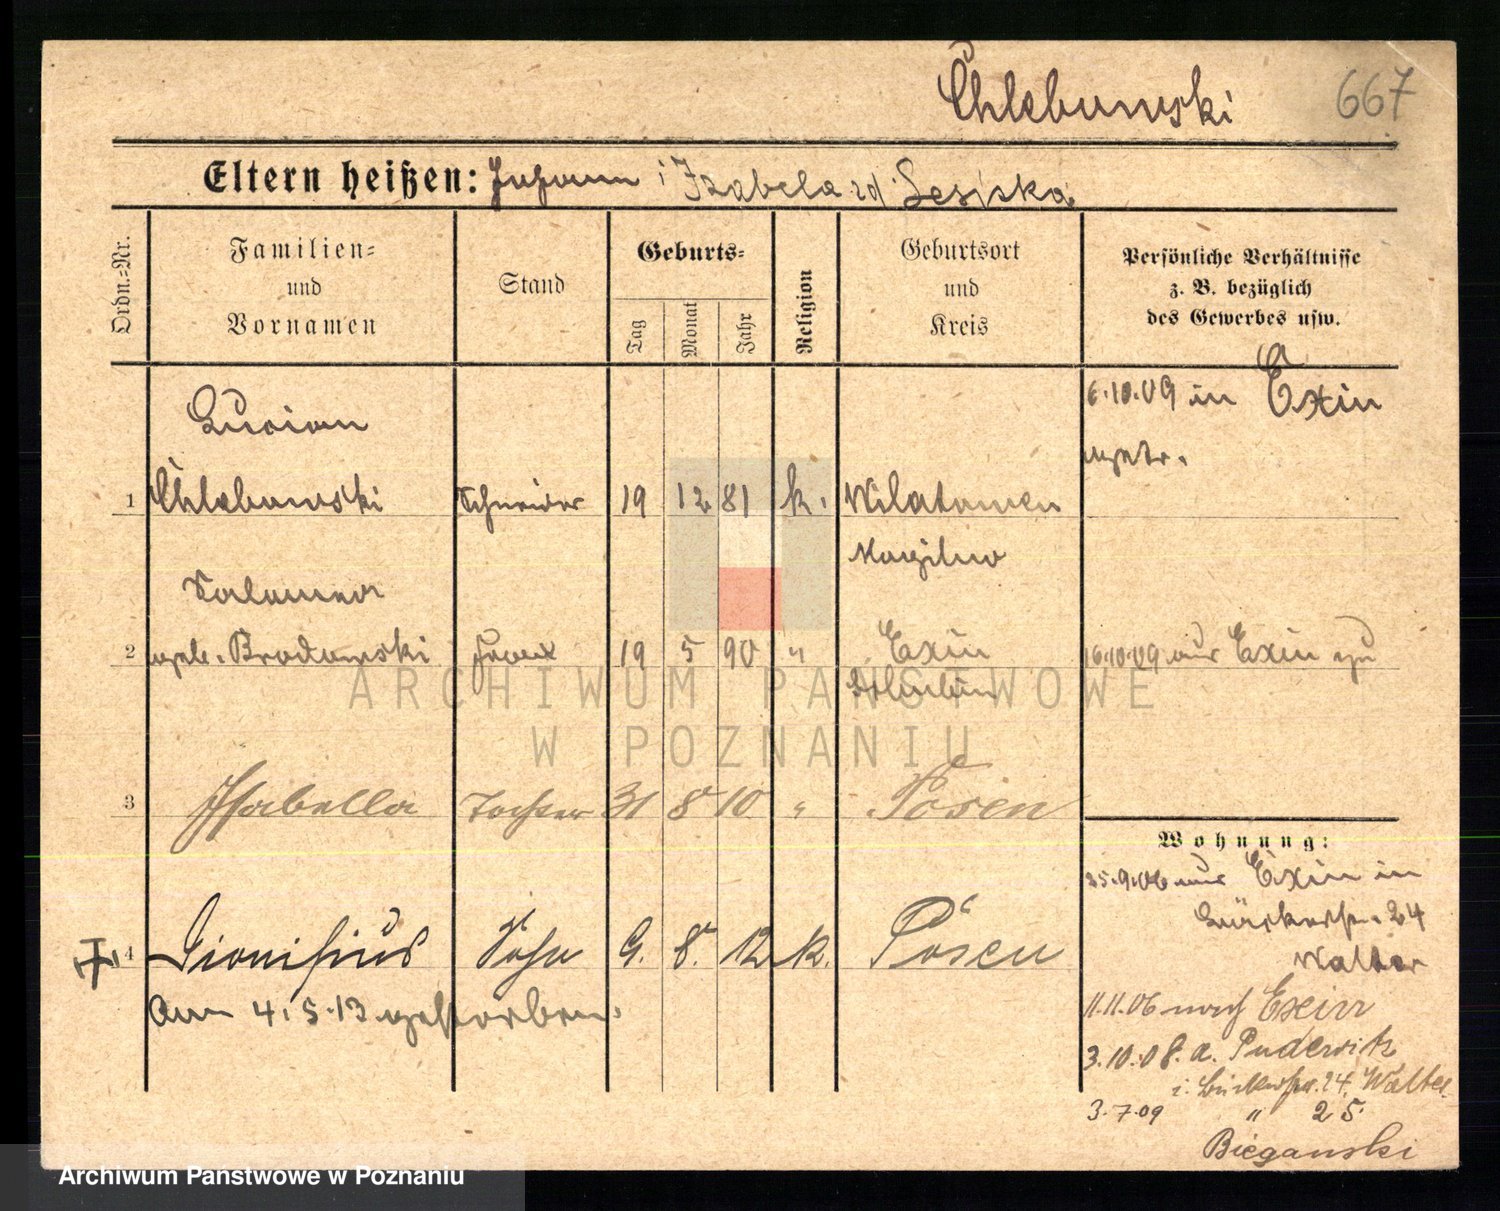 Chlebowski 667
Eltern heißen: Johann i Izabela zd Lesiska
Ordn.-Nr.
Familien- und Vornamen
Stand
Geburts-
Tag
Monat
Jahr
Religion
Geburtsort und Kreis
Persönliche Verhältnisse z. B. bezüglich des Gewerbes usw.
6.10.09 in Exin
Lucian
1 Chlebowski Schneider 19 12 81 k. Wilatowen
Mogilno
Salomea
2 geb. Brodowski Frau 19 5 90 " Exin
16.10.09 aus Exin zu
Schubin
ARCHIWUM PAŃSTWOWE
W POZNANIU
3 Isabella Tochter 31 8 10 " Posen
Wohnung:
25.9.06 aus Exin in
24
Walter
4 Dionisius Sohn 9. 8. 12 k. Posen
am 4.5.13 gestorben.
11.11.06 nach Exin
3.10.08. a. Pudewitz
i. 24. Walter
3.7.09 " 25
Bieganski
Archiwum Państwowe w Poznaniu